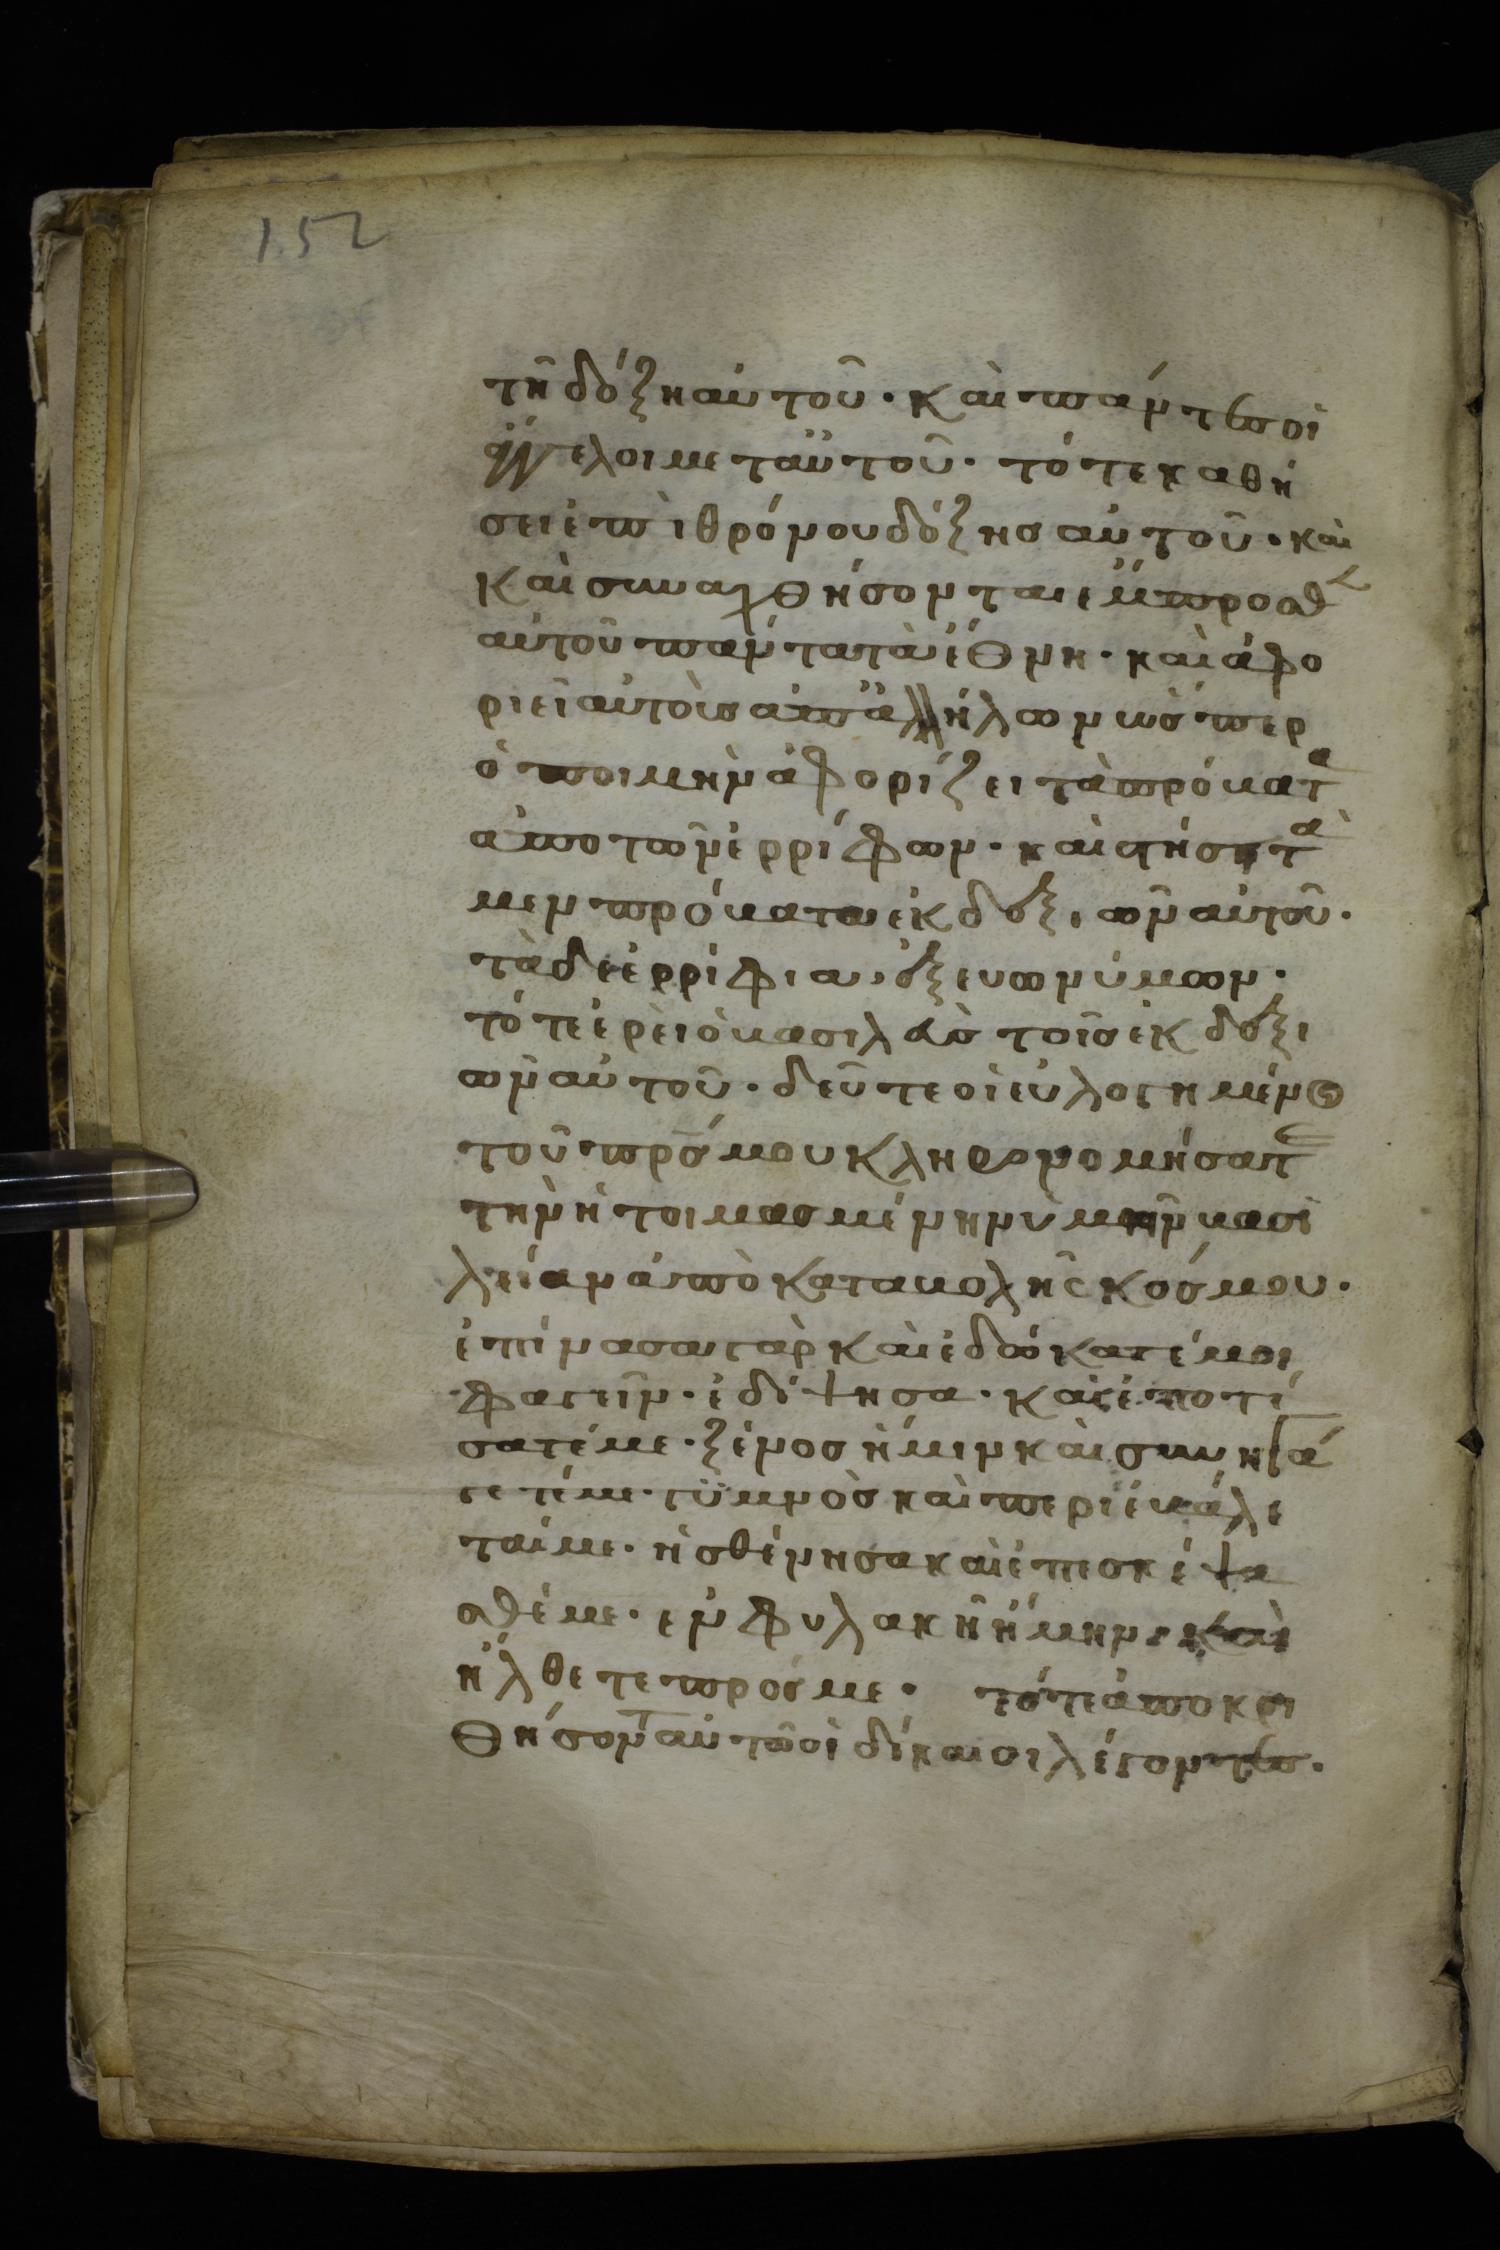 152
τῆ δόξη αὐτοῦ · καὶ πάντες οἱ
ἄγγελοι μετ αὐτοῦ · τότε καθή
σει ἐπὶ θρόνου δόξης αὐτοῦ · καὶ
καὶ συναχθήσονται ἔμπροσθ
αὐτοῦ πάντα τὰ ἔθνη · καὶ ἀφο
ριεῖ αὐτοὺς ἀπ ἀλλήλων ὥσπερ
ὁ ποιμὴν ἀφορίζει τὰ πρόβατα
ἀπο τῶν ἐρρίφων · καὶ στήσει τὰ
μεν πρόβατα ἐκ δεξιῶν αὐτοῦ ·
τὰ δὲ ἐρρίφια ἐξ ευωνύμων ·
τότε ἐρεὶ ὁ βασιλεὺς τοῖς ἐκ δεξι
ῶν αὐτοῦ · δεῦτε οἱ εὐλογημένοι
τοῦ πρσ μου κληρονομήσατε
τὴν ἡτοιμασμένην ὑμῖν βασι
λείαν ἀπὸ καταβολῆς κόσμου ·
ἐπίνασα γὰρ καὶ ἐδώκατέ μοι
φαγεῖν · ἐδίψησα · καὶ ἐποτί
σατέ με · ξένος ἤμιν καὶ συνηγά
γετέ με · γϋμνὸς καὶ περιεβάλε
ταί με · ἠσθένησα καὶ ἐπεσκέψα
σθέ με · εν φυλακῆ ἤμην · καὶ
ἤλθετε πρός με · τότε ἀποκρι
θήσοντ αὐτῶ οἱ δίκαιοι λέγοντες ·